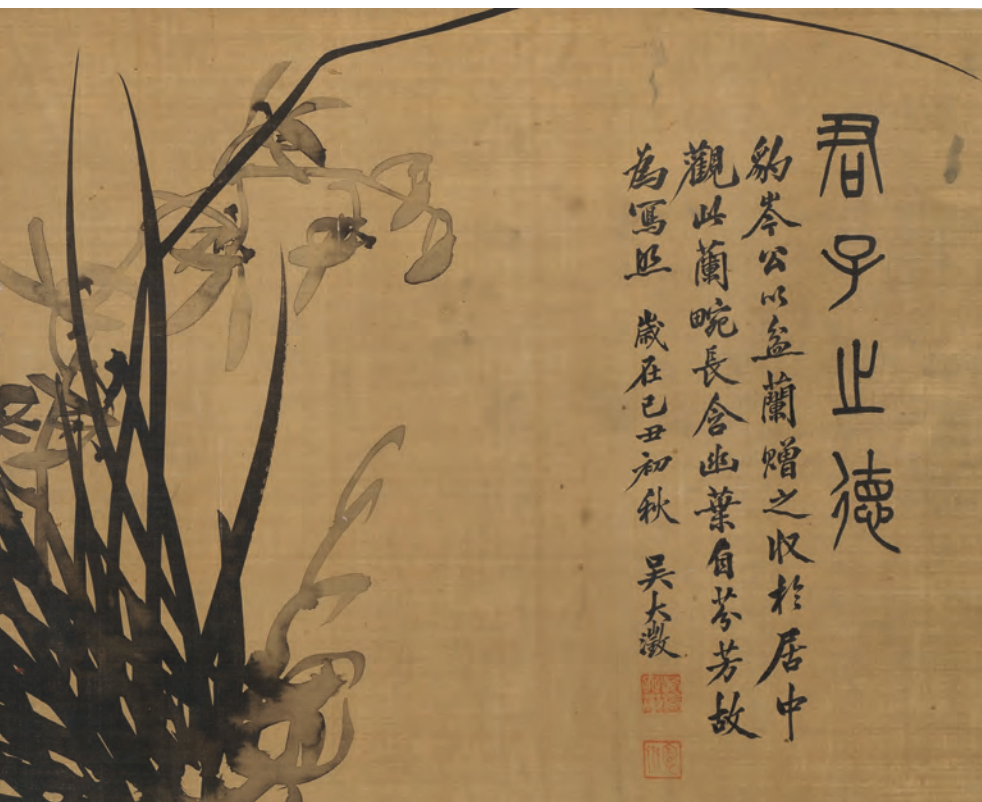 君子之德
豹岑公以盆蘭贈之收於居中
觀此蘭畹長含幽葉自芬芳故
為寫照 歲在己丑初秋 吳大澂